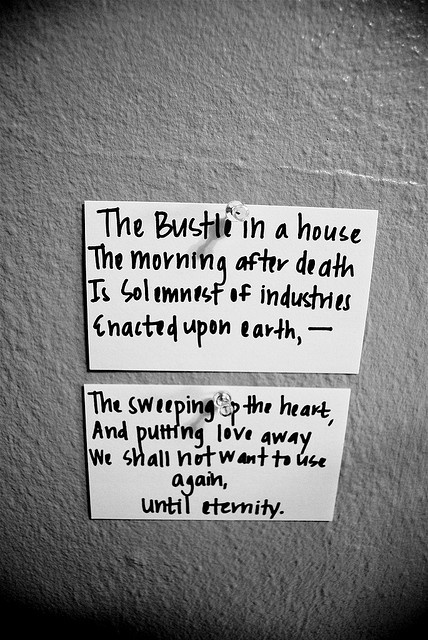 The Bustle in a house
The morning after death
Is Solemnest of industries
Enacted upon earth, —
The sweeping up the heart,
And putting love away
We shall not want to use
again,
until eternity.